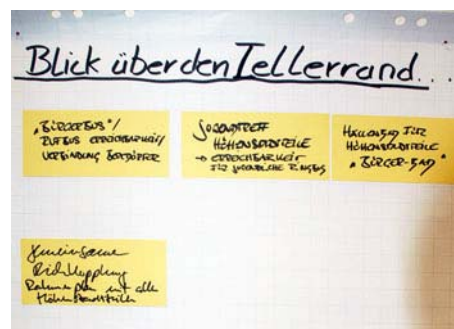 Blick über den Tellerrand...
"BÜRGERBUS"/
RUFBUS ERREICHBARKEIT/
VERBINDUNG
JUGENDTREFF
HÖHENSTADTTEILE
→ ERREICHBARKEIT
FÜR JUGENDLICHE RINGBUS
HALLENBAD FÜR
HÖHENSTADTTEILE
"BÜRGER-BAD"
Gemeinsame
Rahmenplan mit alle
Höhenstadtteilen